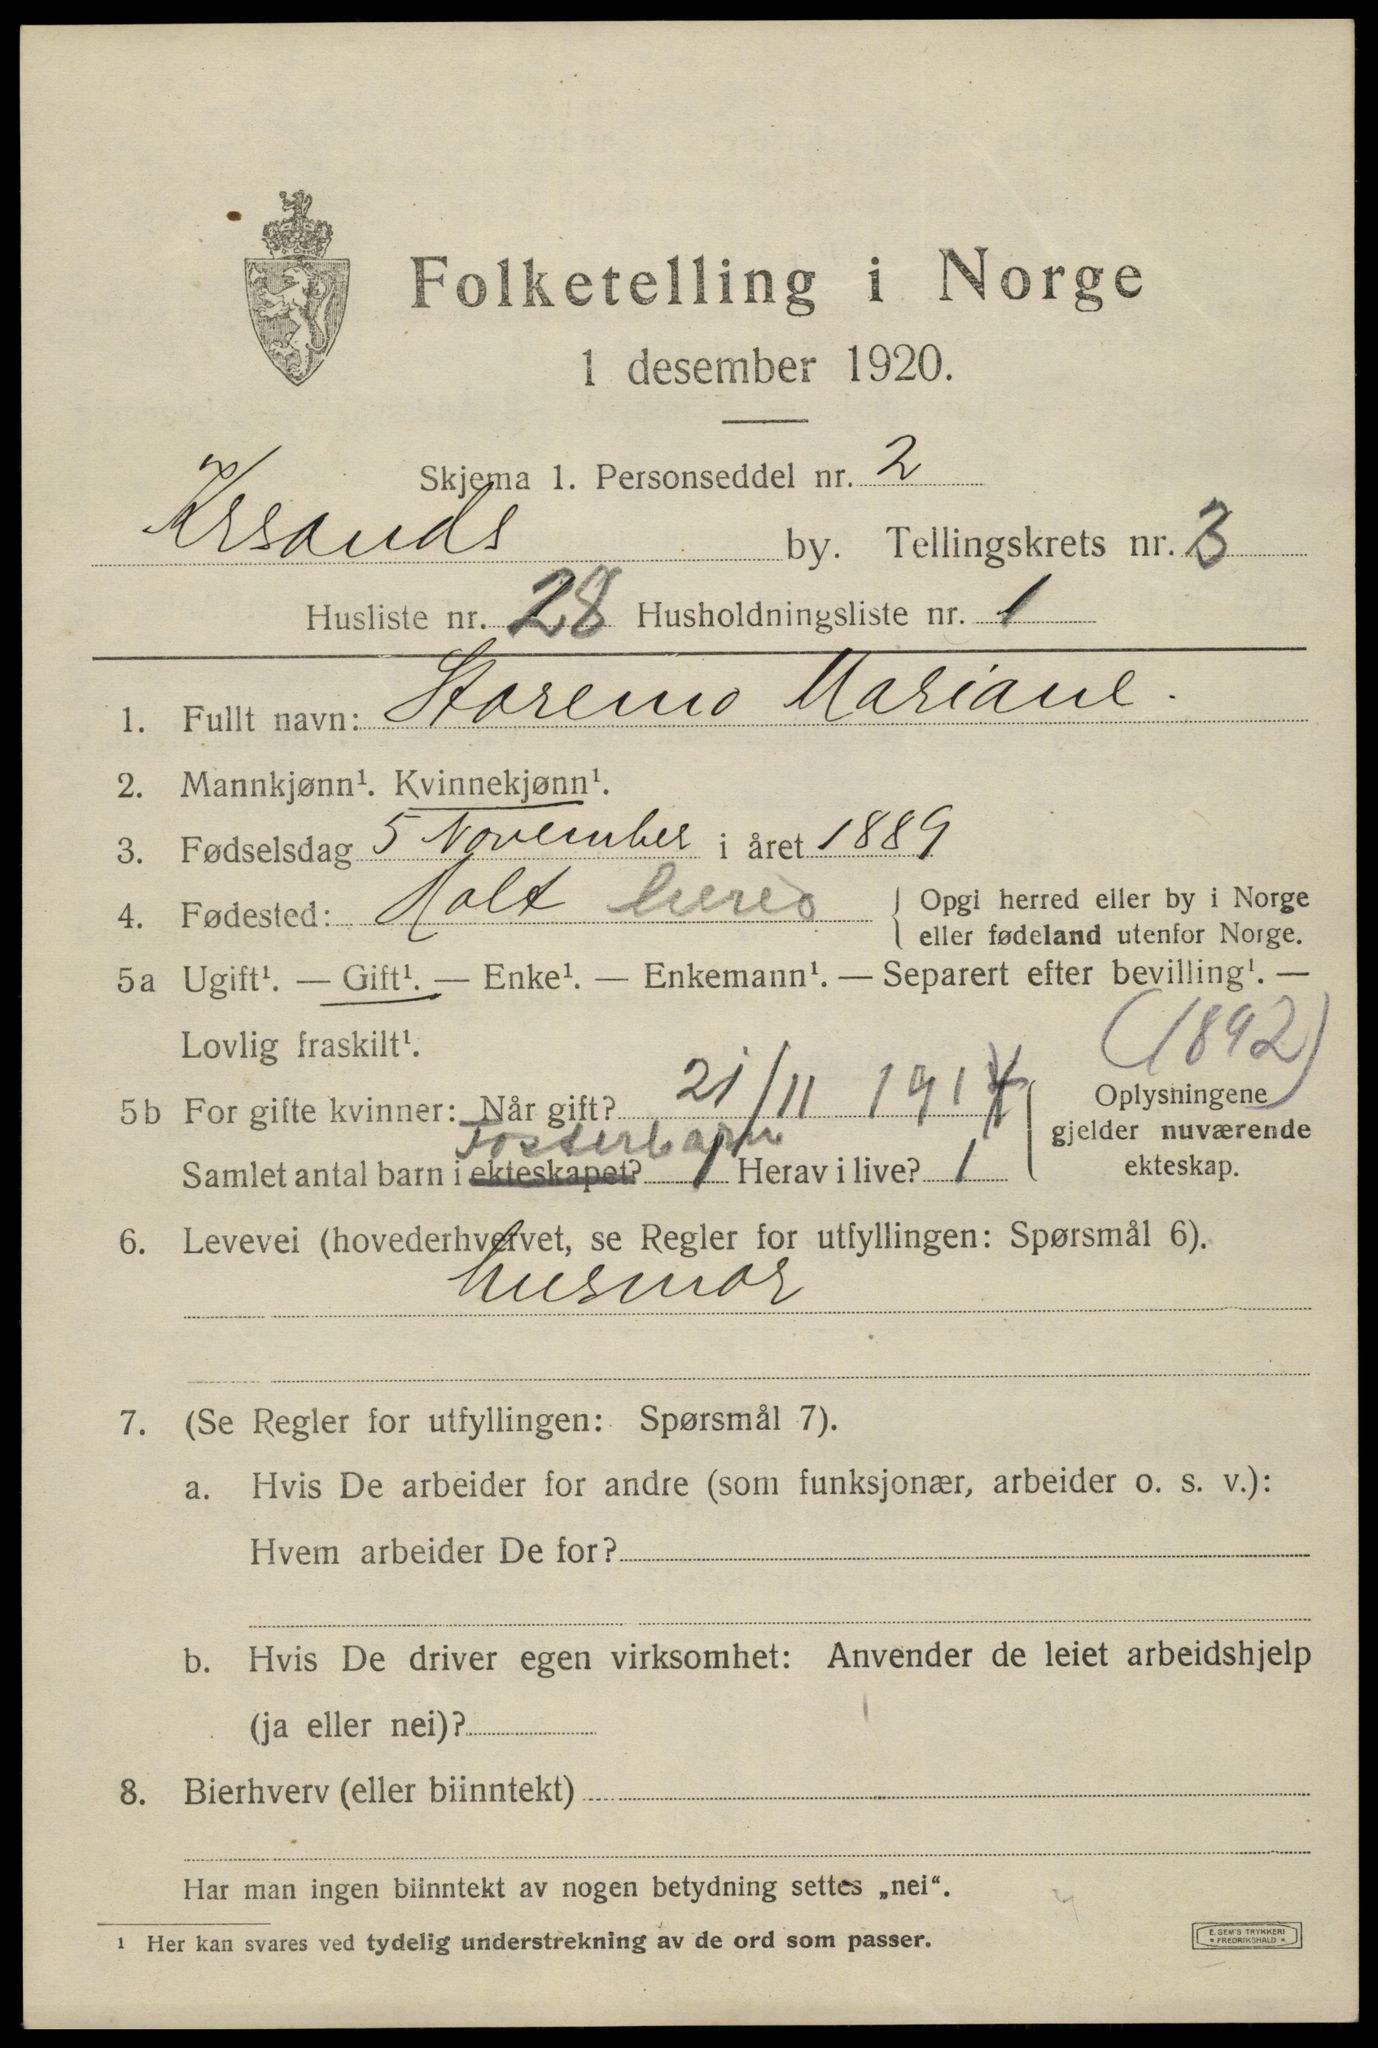 Folketelling i Norge
1 desember 1920.
Skjema 1. Personseddel nr. 2
Krsands by. Tellingskrets nr. 3
Husliste nr. 28 Husholdningsliste nr. 1
1. Fullt navn: Storemo Mariane.
2. Mannkjønn¹. Kvinnekjønn¹.
3. Fødselsdag 5 November i året 1889
4. Fødested: Holt herred { Opgi herred eller by i Norge
eller fødeland utenfor Norge.
5a Ugift¹. — Gift¹. — Enke¹. — Enkemann¹. — Separert efter bevilling¹. —
Lovlig fraskilt¹.
(1892)
5b For gifte kvinner: Når gift? 21/11 1914
Fosterbarn
Samlet antal barn i ekteskapet? 1 Herav i live? 1
Oplysningene
gjelder nuværende
ekteskap.
6. Levevei (hovederhvervet, se Regler for utfyllingen: Spørsmål 6).
husmor
7. (Se Regler for utfyllingen: Spørsmål 7).
a. Hvis De arbeider for andre (som funksjonær, arbeider o. s. v.):
Hvem arbeider De for?
b. Hvis De driver egen virksomhet: Anvender de leiet arbeidshjelp
(ja eller nei)?
8. Bierhverv (eller biinntekt)
Har man ingen biinntekt av nogen betydning settes „nei“.
¹ Her kan svares ved tydelig understrekning av de ord som passer.
E. SEM'S TRYKKERI
* FREDRIKSHALD *